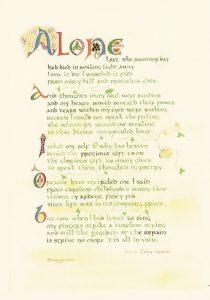 Alone
I sat the summer day
had died in smiling light away
I saw it die I watched it fade
from misty hill and breezeless glade
And thoughts in my soul were rushing
and my heart bowed beneath their power
and tears within my eyes were rushing
because I could not speak the feeling
the solemn joy around me stealing
in that divine untroubled hour
I asked my self O why has heaven
denied the precious gift to me
the glorious gift to many given
to speak their thoughts in poetry
Dreams have encircled me I said
from careless childhood's sunny time
visions by ardent fancy fed
since life was in its morning prime
But now when I had hoped to sing
my fingers strike a tuneless string
and still the burden of the strain
is strive no more it is all in vain